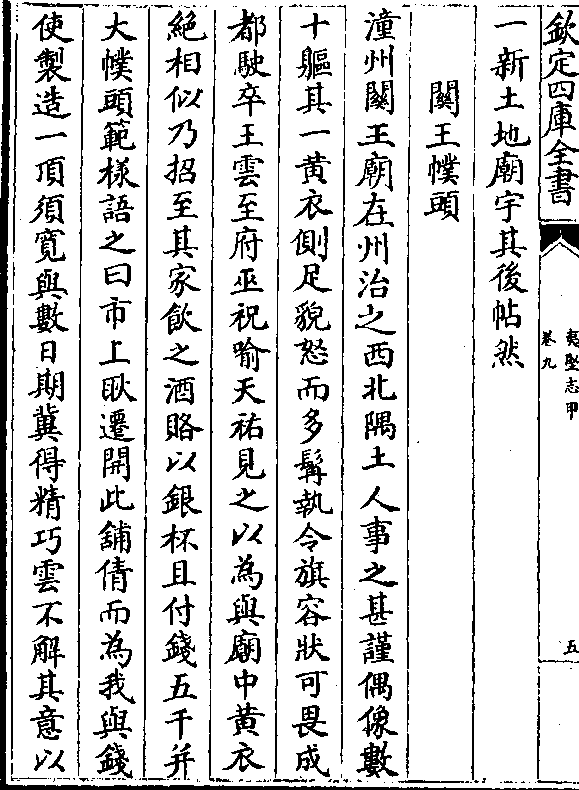 欽定四庫全書
夷堅志甲
卷九
五
一新土地廟宇其後帖然
關王幞頭
潼州關王廟在州治之西北隅土人事之甚謹偶像數
十軀其一黃衣側足貌怒而多髯執令旗容狀可畏成
都駛卒王雲至府巫祝喻天祐見之以為與廟中黃衣
絶相似乃招至其家飲之酒賂以銀杯且付錢五千并
大幞頭範様語之曰市上耿遷開此舖倩而為我與錢
使製造一頂須寛與數日期冀得精巧雲不解其意以